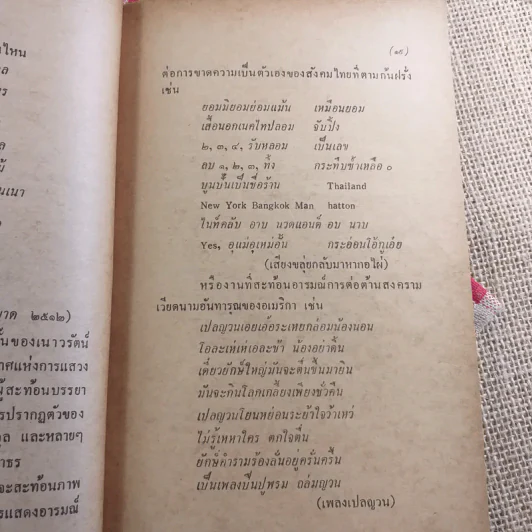 ไหน
ล
ร
ล
ย้
นเนา
าด ๒๕๑๒)
ั้นของเนาวรัตน์
าศแห่งการแสวง
ผู้สะท้อนบรรยา
รปรากฏตัวของ
กุล และหลายๆ
าธร
จะสะท้อนภาพ
รแสดงอารมณ์
(๑๙)
ต่อการขาดความเป็นตัวเองของสังคมไทยที่ตามก้นฝรั่ง
เช่น
ยอมมิยอมย่อมแม้น เหมือนยอม
เสื้อนอกเนคไทปลอม จับปิ้ง
๒, ๓, ๔, วับหลอม เป็นเลข
ลบ ๑, ๒, ๓, ทั้ง กระทืบซ้ำเหลือ ๐
บูมบึ้นเป็นชื่อร้าน Thailand
New York Bangkok Man hatton
ไนท์คลับ อาบ นวดแอนด์ อบ นาบ
Yes, อุแม่อุเหม่อั้น กระอ่อนโอ้กูเอ๋ย
(เสียงขลุ่ยกลับมาหากอไผ่)
หรืองานที่สะท้อนอารมณ์การต่อต้านสงคราม
เวียดนามอันทารุณของอเมริกา เช่น
เปลญวนเอยเอื้อระเหยกล่อมน้องนอน
โอละเห่เห่เอละช้า น้องอย่าดิ้น
เดี๋ยวยักษ์ใหญ่มันจะตื่นขึ้นมายิน
มันจะกินโลกเกลี้ยงเพียงชั่วคืน
เปลญวนโยนหย่อนระย้าใจว้าเหว่
ไม่รู้เหหาใคร ตกใจตื่น
ยักษ์คำรามร้องลั่นอยู่ครั่นครืน
เป็นเพลงปืนปูพรม ถล่มญวน
(เพลงเปลญวน)